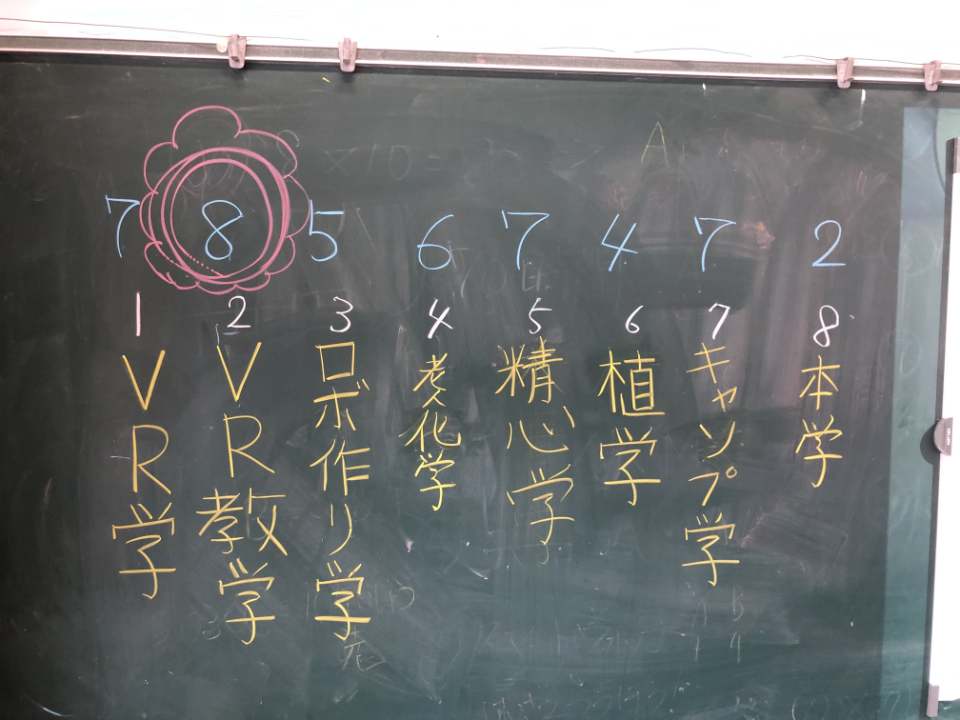 A
7 8 5 6 7 4 7 2
1 2 3 4 5 6 7 8
VR学
VR教学
ロボ作り学
老化学
精心学
植学
キャンプ学
本学